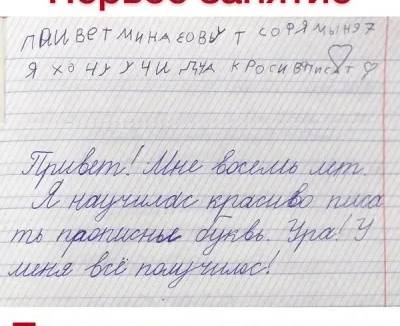 Первое занятие
ПИИВЕТ МИНАЗОВУ Т СОФЯ МЫНЯ 7
Я ХОЧУ УЧИ ДЦА КРОСИВАПИСАТ
Привет! Мне восемь лет.
Я научилас красиво писа
ть прописные буквы. Ура! У
меня всё получилос!